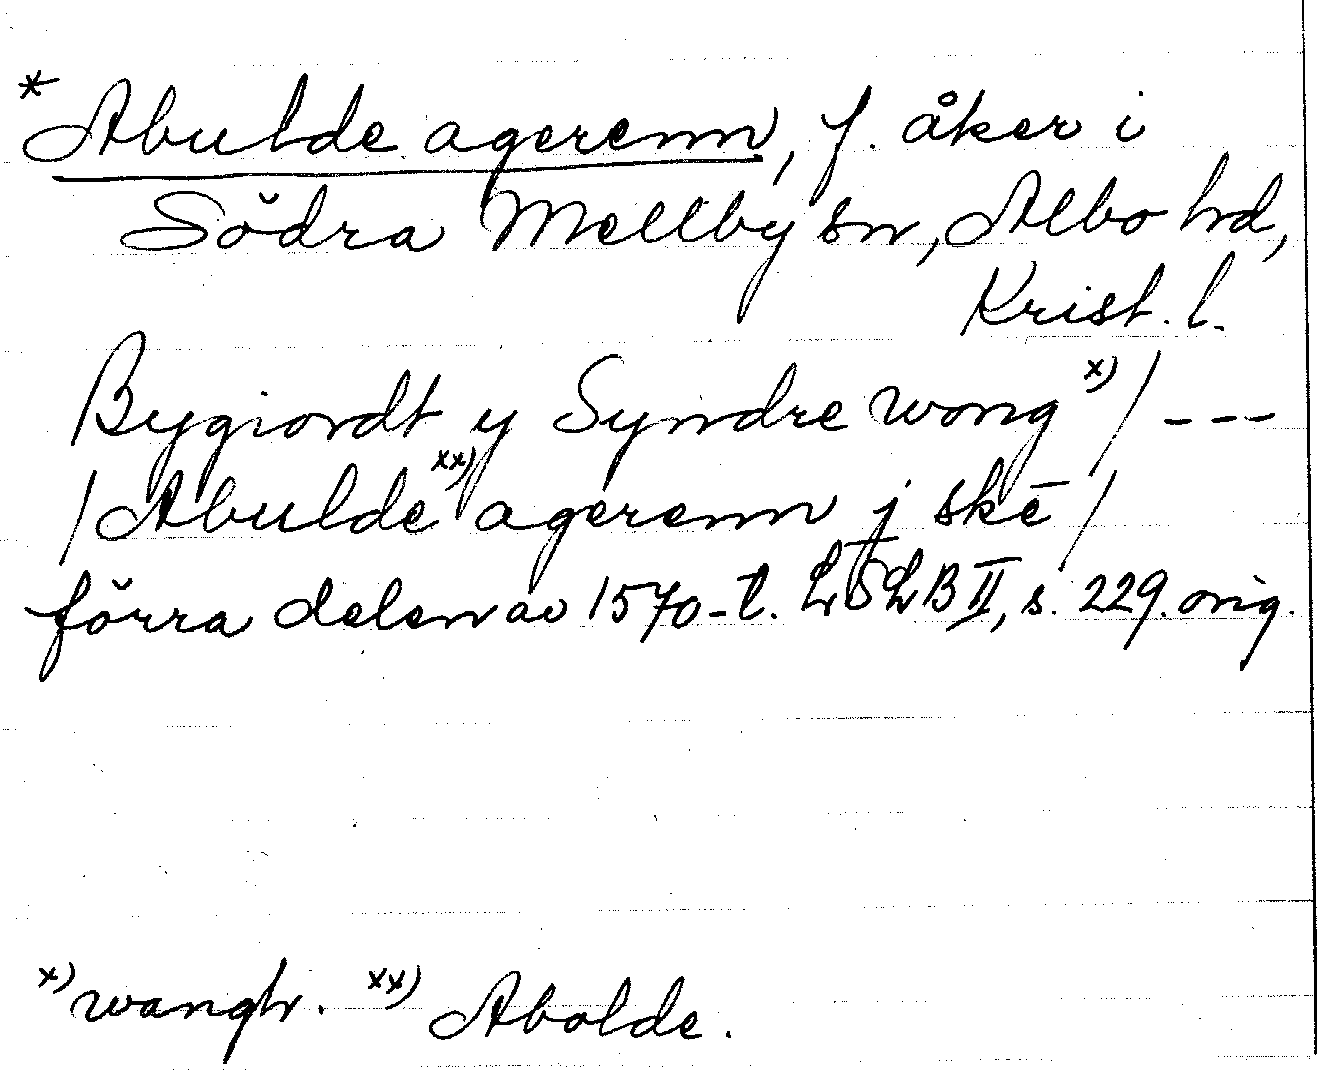 * Abulde agerenn, f. åker i
Södra Mellby sn, Albo hd,
Krist. l.
Bygiordt y Syndre wong x) / ---
/ Abulde xx) agerenn j skē /
förra delen av 1570-t. LSLB II, s. 229. orig.
x) wangh. xx) Abolde.